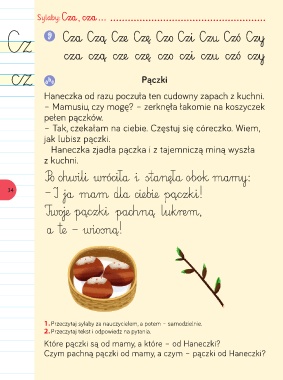 Sylaby Cza, cza...
Cz
Cza Czą Cze Czę Czo Czi Czu Czó Czy
cz
cza czą cze czę czo czi czu czó czy
Pączki
Haneczka od razu poczuła ten cudowny zapach z kuchni.
– Mamusiu, czy mogę? – zerknęła łakomie na koszyczek
pełen pączków.
– Tak, czekałam na ciebie. Częstuj się córeczko. Wiem,
jak lubisz pączki.
Haneczka zjadła pączka i z tajemniczą miną wyszła
z kuchni.
Po chwili wróciła i stanęła obok mamy:
– I ja mam dla ciebie pączki!
Twoje pączki pachną lukrem,
a te – wiosną!
34
1. Przeczytaj sylaby za nauczycielem, a potem – samodzielnie.
2. Przeczytaj tekst i odpowiedz na pytania.
Które pączki są od mamy, a które – od Haneczki?
Czym pachną pączki od mamy, a czym – pączki od Haneczki?